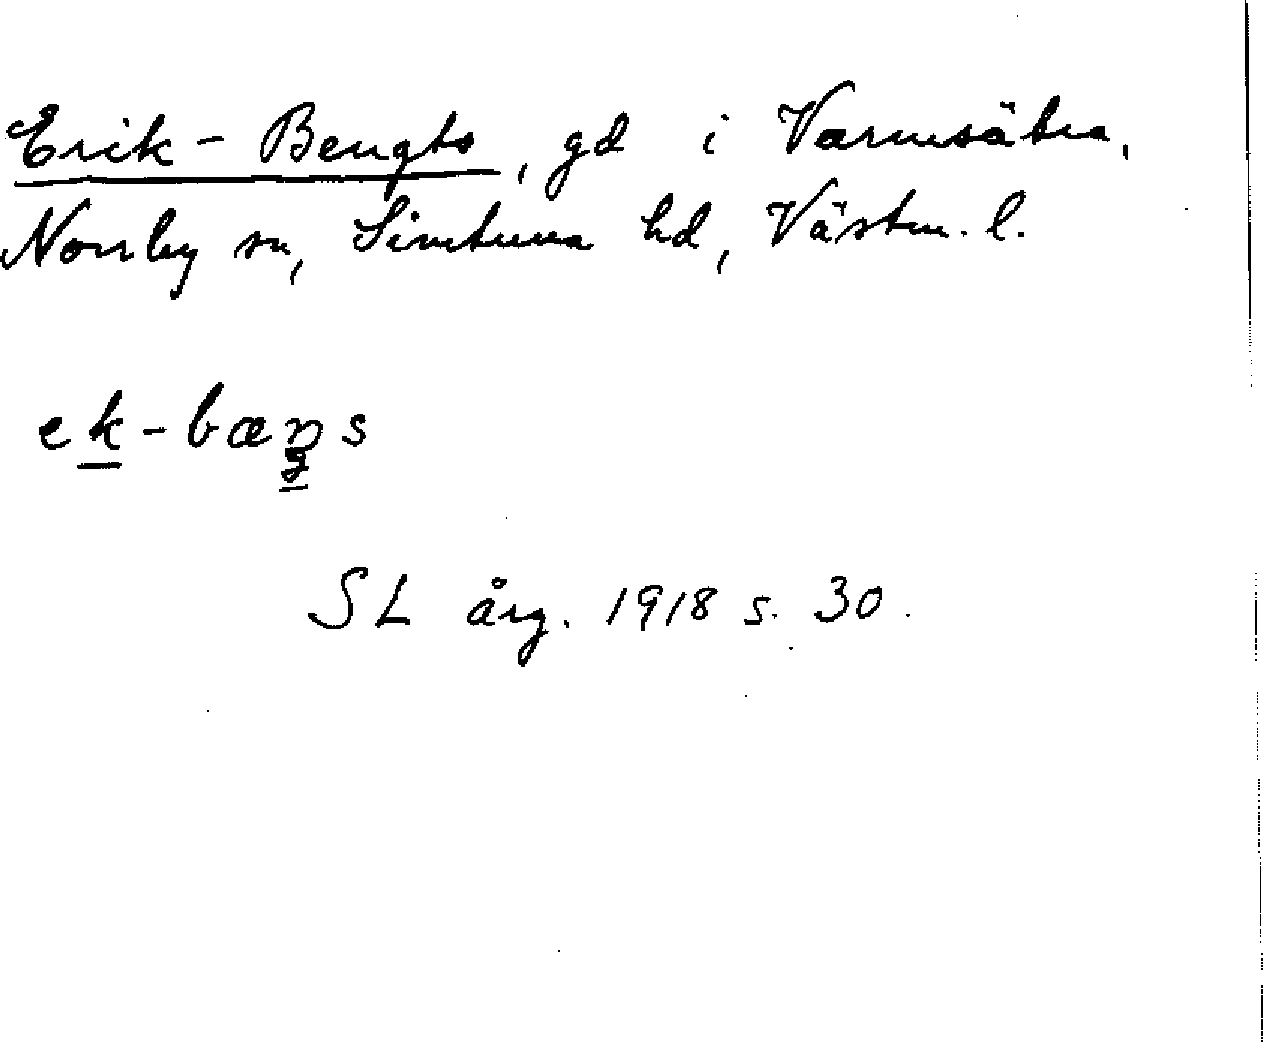 Erik-Bengts, gd i Varmsätra,
Norrby sn, Simtuna hd, Västm. l.
ek-bæŋs
SL årg. 1918 s. 30.